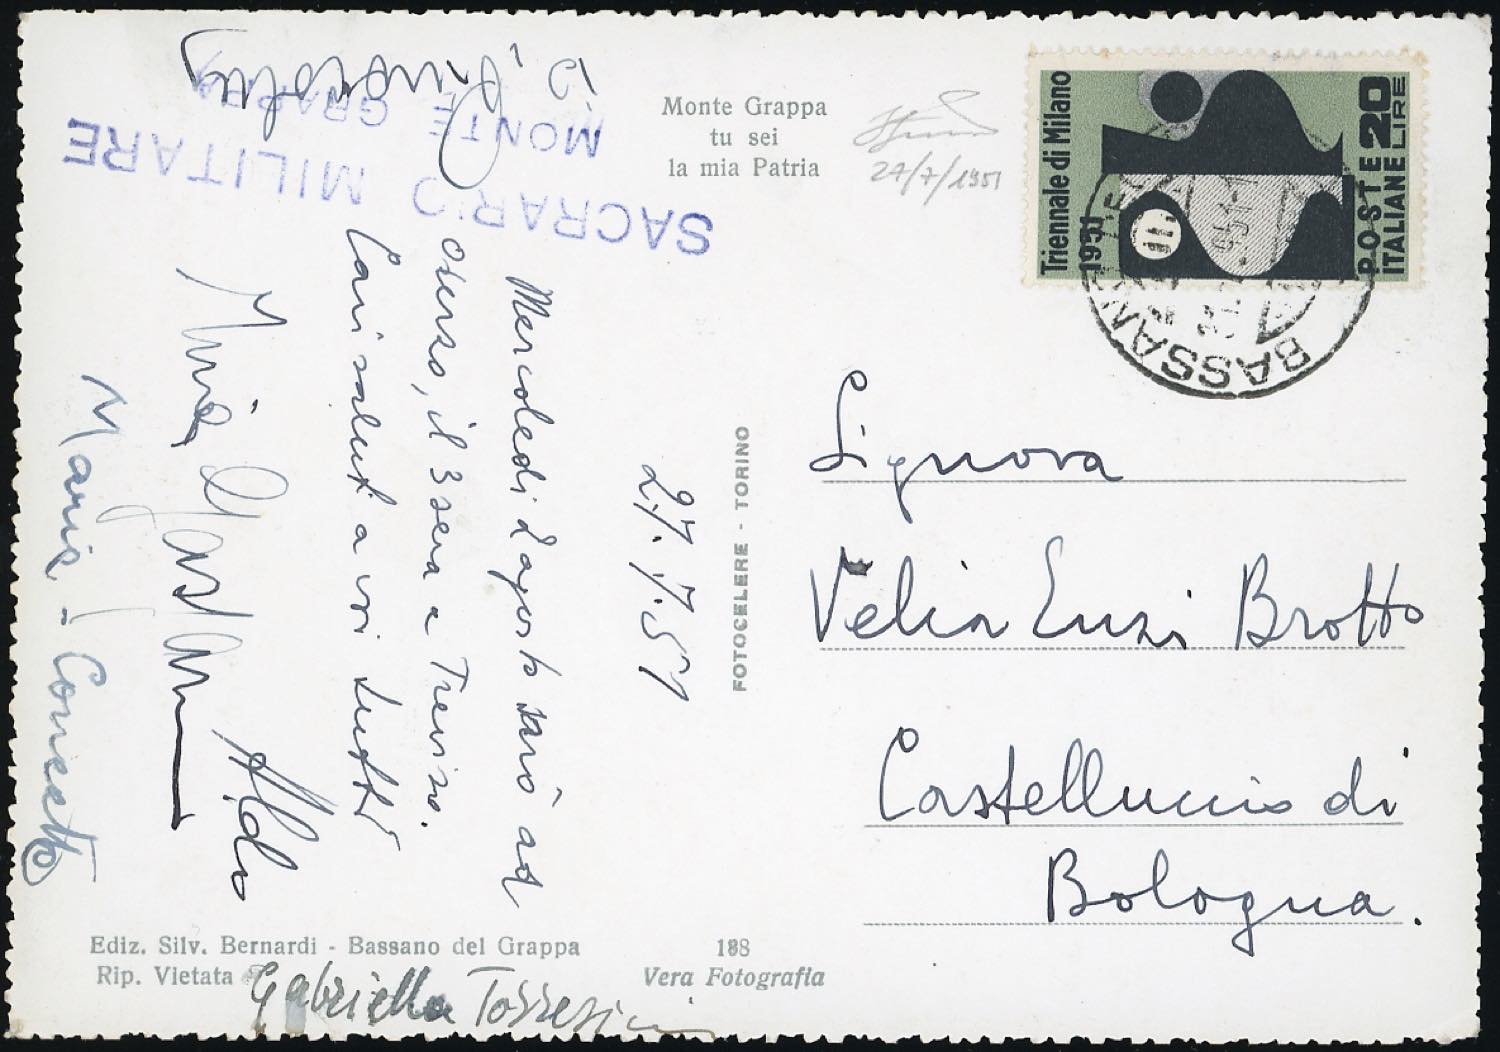 Monte Grappa
tu sei
la mia Patria
27/7/1951
Triennale di Milano
1951
POSTE
ITALIANE
LIRE 20
BASSAN
SACRARIO MILITARE
MONTE GRAPPA
27.7.51
Mercoledì 2 agosto sarò ad
, il 3 sera a Treviso.
Cari saluti a voi tutti
Aldo
Maria
Gabriella
FOTOCELERE - TORINO
Signora
Velia Enzi Brotto
Castelluccio di
Bologna.
Ediz. Silv. Bernardi - Bassano del Grappa
Rip. Vietata
188
Vera Fotografia